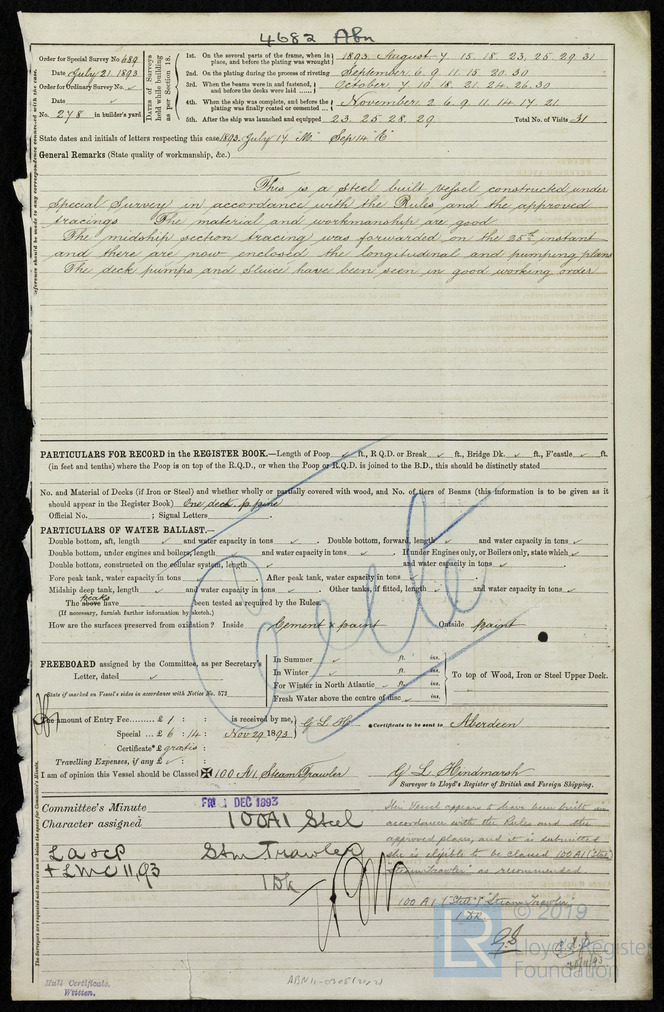 4682 Abn
Order for Special Survey No. 689
Date July 21. 1893
Order for Ordinary Survey No. ✓
Date ✓
No. 278 in builder's yard
Dates of Surveys held while building as per Section 18.
1st. On the several parts of the frame, when in place, and before the plating was wrought 1893 August 7. 15. 18. 23. 25. 29. 31
2nd. On the plating during the process of riveting September. 6. 9. 11. 15. 20. 30
3rd. When the beams were in and fastened, and before the decks were laid October 7 10 18. 21. 24. 26. 30
4th. When the ship was complete, and before the plating was finally coated or cemented November. 2 6. 9. 11. 14. 17. 21
5th. After the ship was launched and equipped 23. 25. 28. 29 Total No. of Visits 31
State dates and initials of letters respecting this case 1893. July 17 "M" Sep 14 "E"
General Remarks (State quality of workmanship, &c.)
This is a steel built vessel constructed under
Special Survey in accordance with the Rules and the approved
tracings. The material and workmanship are good.
The midship section tracing was forwarded on the 25th instant
and there are now enclosed the longitudinal and pumping plans
The deck pumps and sluice have been seen in good working order
PARTICULARS FOR RECORD in the REGISTER BOOK.—Length of Poop ✓ ft., R.Q.D. or Break ✓ ft., Bridge Dk. ✓ ft., F'castle ✓ ft.
(in feet and tenths) where the Poop is on top of the R.Q.D., or when the Poop or R.Q.D. is joined to the B.D., this should be distinctly stated
No. and Material of Decks (if Iron or Steel) and whether wholly or partially covered with wood, and No. of tiers of Beams (this information is to be given as it
should appear in the Register Book) One deck. p pine
Official No. ; Signal Letters
PARTICULARS OF WATER BALLAST.—
Double bottom, aft, length ✓ and water capacity in tons ✓ . Double bottom, forward, length ✓ and water capacity in tons ✓
Double bottom, under engines and boilers, length and water capacity in tons ✓ . If under Engines only, or Boilers only, state which ✓
Double bottom, constructed on the cellular system, length ✓ and water capacity in tons ✓
Fore peak tank, water capacity in tons . After peak tank, water capacity in tons ✓
Midship deep tank, length ✓ and water capacity in tons ✓ . Other tanks, if fitted, length and water capacity in tons ✓
The above peaks have been tested as required by the Rules.
(If necessary, furnish further information by sketch.)
How are the surfaces preserved from oxidation? Inside Cement & paint Outside paint
Deelte
FREEBOARD assigned by the Committee, as per Secretary's
Letter, dated ✓
State if marked on Vessel's sides in accordance with Notice No. 573
In Summer ✓ ft. ins.
In Winter ✓ ft. ins.
For Winter in North Atlantic ✓ ft. ins.
Fresh Water above the centre of disc ✓ ins.
To top of Wood, Iron or Steel Upper Deck.
Fee amount of Entry Fee........ £ 1 : : is received by me, G L H. Certificate to be sent to Aberdeen
Special ... £ 6 : 14 : Nov 29 1893
Certificate* £ gratis :
Travelling Expenses, if any £ ✓ :
I am of opinion this Vessel should be Classed ✠ 100 A1 Steam Trawler
G L Hindmarsh
Surveyor to Lloyd's Register of British and Foreign Shipping.
Committee's Minute FRI. 1 DEC 1893
Character assigned 100A1 Steel
Stm Trawler
1 Dk
L A & CP
+ LMC 11,93
This Vessel appears to have been built in
accordance with the Rules and the
approved plans, and it is submitted
she is eligible to be classed 100A1 (Steel)
"Steam Trawler" as recommended
100 A1 (Steel) "Steam Trawler"
1 Dk
G.S
30/11/93
Hull Certificate.
Written.
ABN11-0308 (2 of 2)
LR
© 2019
Lloyd's Register
Foundation